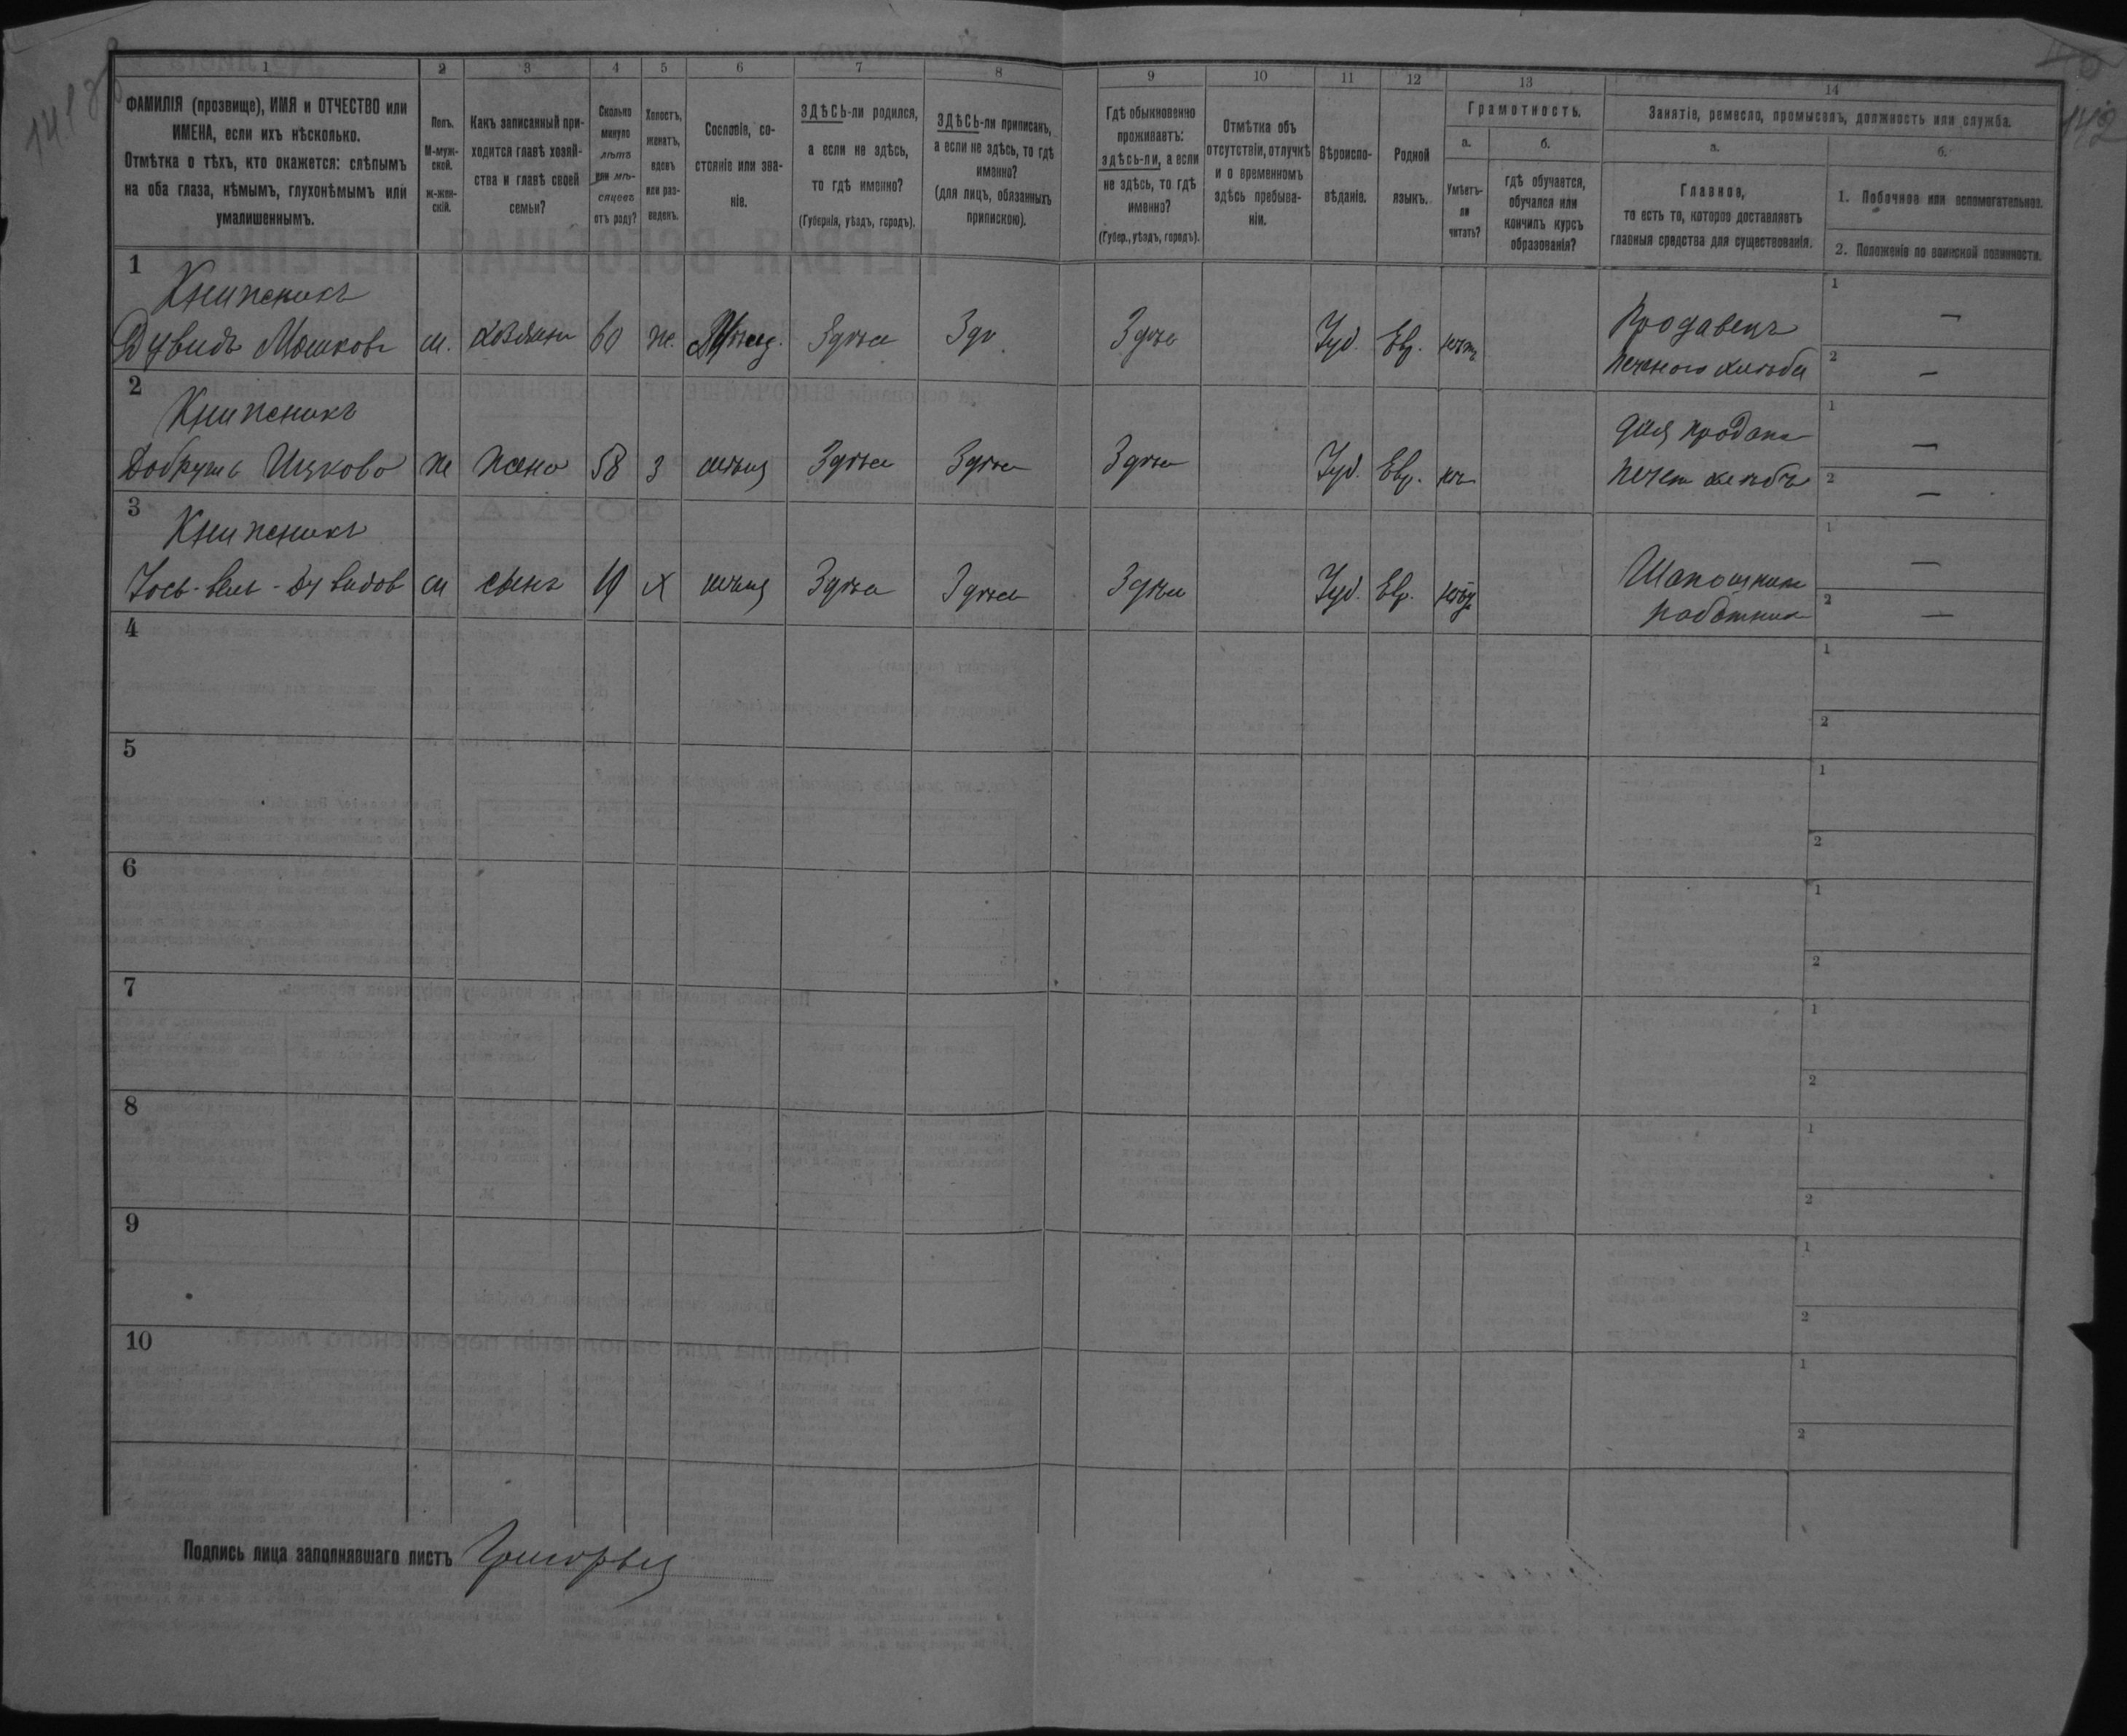 141 об
142
1 2 3 4 5 6 7 8 9 10 11 12 13 14
ФАМИЛІЯ (прозвище), ИМЯ и ОТЧЕСТВО или
ИМЕНА, если ихъ нѣсколько.
Отмѣтка о тѣхъ, кто окажется: слѣпымъ
на оба глаза, нѣмымъ, глухонѣмымъ или
умалишеннымъ.
Полъ.
М-муж-
ской.
ж-жен-
скій.
Какъ записанный при-
ходится главѣ хозяй-
ства и главѣ своей
семьи?
Сколько
минуло
лѣтъ
или мѣ-
сяцевъ
отъ роду?
Холостъ,
женатъ,
вдовъ
или раз-
веденъ.
Сословіе, со-
стояніе или зва-
ніе.
ЗДѢСЬ-ли родился,
а если не здѣсь,
то гдѣ именно?
(Губернія, уѣздъ, городъ).
ЗДѢСЬ-ли приписанъ,
а если не здѣсь, то гдѣ
именно?
(для лицъ, обязанныхъ
припискою).
Гдѣ обыкновенно
проживаетъ:
здѣсь-ли, а если
не здѣсь, то гдѣ
именно?
(Губер., уѣздъ, городъ).
Отмѣтка объ
отсутствіи, отлучкѣ
и о временномъ
здѣсь пребыва-
ніи.
Вѣроиспо-
вѣданіе.
Родной
языкъ.
Грамотность.
а.
Умѣетъ-
ли
читать?
б.
гдѣ обучается,
обучался или
кончилъ курсъ
образованія?
Занятіе, ремесло, промыселъ, должность или служба.
а.
Главное,
то есть то, которое доставляетъ
главныя средства для существованія.
б.
1. Побочное или вспомогательное.
2. Положеніе по воинской повинности.
1
Книжникъ
Дувидъ Мошковъ м. хозяинъ 60 ж. Мѣщ. Здѣсь Здѣ Здѣсь Іуд. Евр. нѣтъ
Продавецъ
печеного хлѣба
1 —
2 —
2
Книжникъ
Добрушъ Ицкова ж жена 58 з мѣщ Здѣсь Здѣсь Здѣсь Іуд. Евр. нѣ
для продажи
печетъ хлѣбъ
1 —
2 —
3
Книжникъ
м сынъ х мѣщ Здѣсь Здѣсь Здѣсь Іуд. Евр.
Шапошникъ
работникъ
1 —
2 —
4
1
2
5
1
2
6
1
2
7
1
2
8
1
2
9
1
2
10
1
2
Подпись лица заполнявшаго листъ